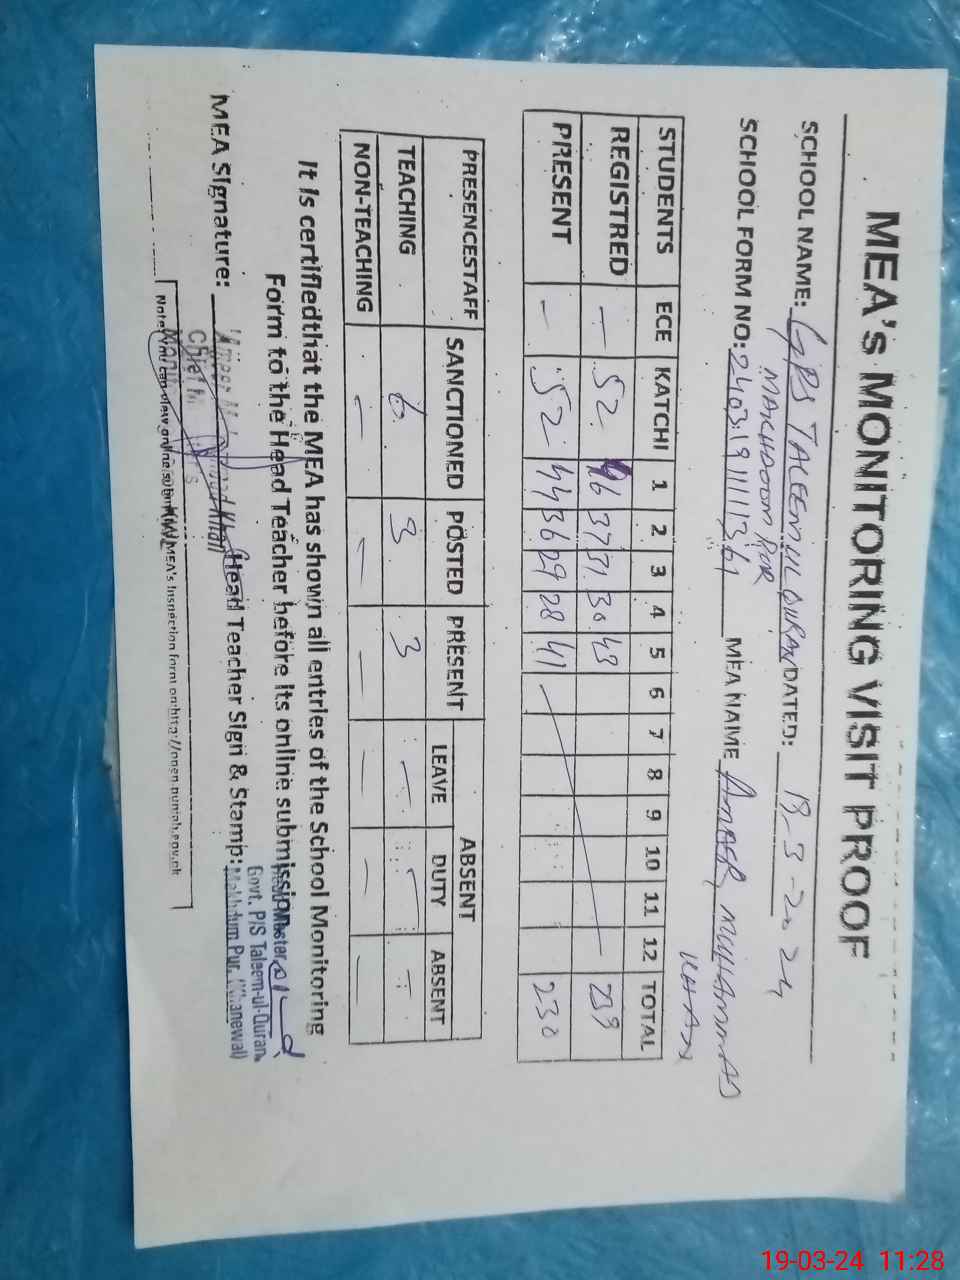 MEA's MONITORING VISIT PROOF
SCHOOL NAME: GPS TALEEMUL QURAN DATED: 19-3-2024
MAKHDOOM PUR
SCHOOL FORM NO: MEA NAME AMEER MUHAMMAD
KHAN
STUDENTS ECE KATCHI 1 2 3 4 5 6 7 8 9 10 11 12 TOTAL
REGISTRED — 52 46 37 31 30 43 239
PRESENT — 52 44 36 29 28 41 230
PRESENCESTAFF SANCTIONED POSTED PRESENT ABSENT
LEAVE DUTY ABSENT
TEACHING 6 3 3 — — —
NON-TEACHING — — — — — —
It is certifiedthat the MEA has shown all entries of the School Monitoring
Form to the Head Teacher before its online submission
MEA Signature: Head Teacher Sign & Stamp:
Head Master
Govt. P/S Taleem-ul-Quran
Makhdum Pur, (Khanewal)
Note: You can view online submitted MEA's Inspection form on http://open.punjab.gov.pk
19-03-24 11:28